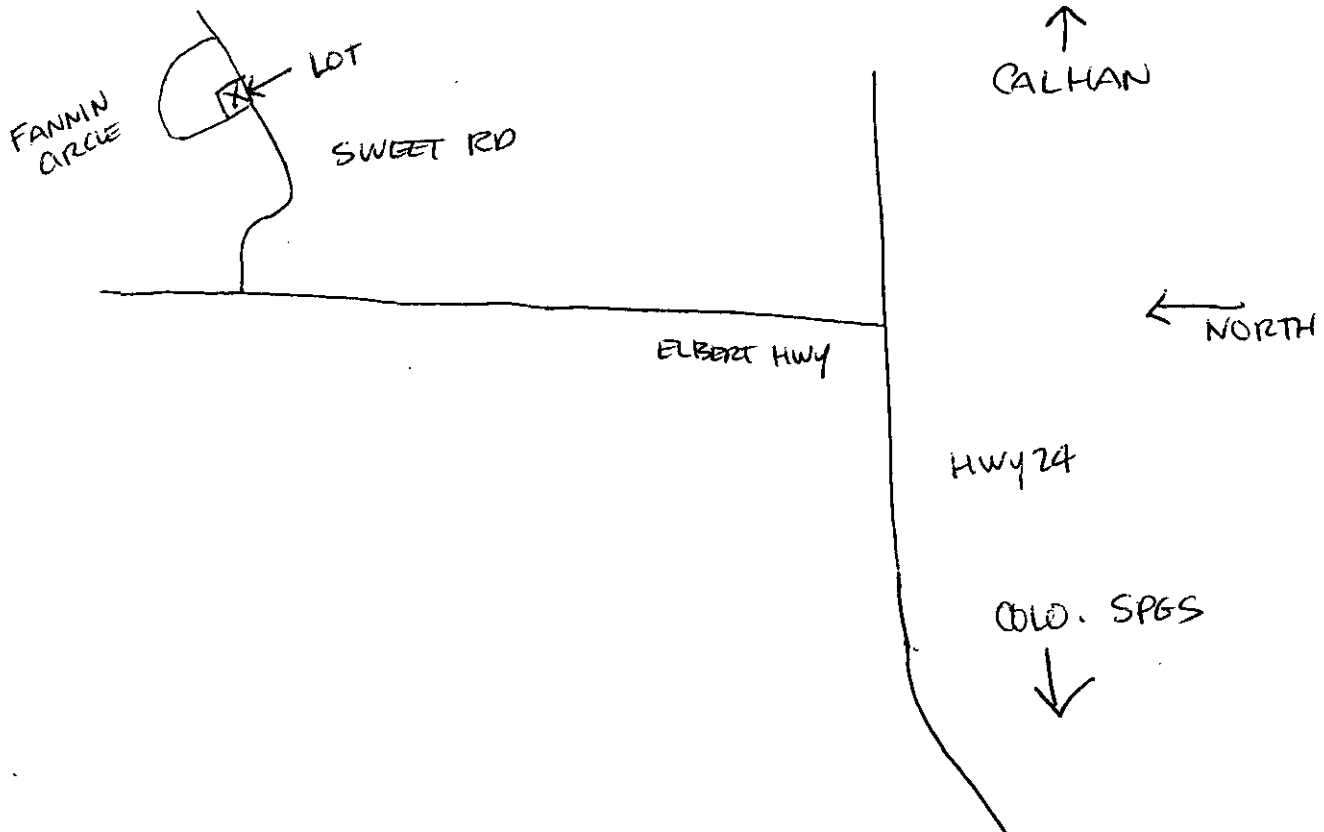 LOT
CALHAN
FANNIN
CIRCLE
SWEET RD
NORTH
ELBERT HWY
HWY 24
COLO. SPGS
X